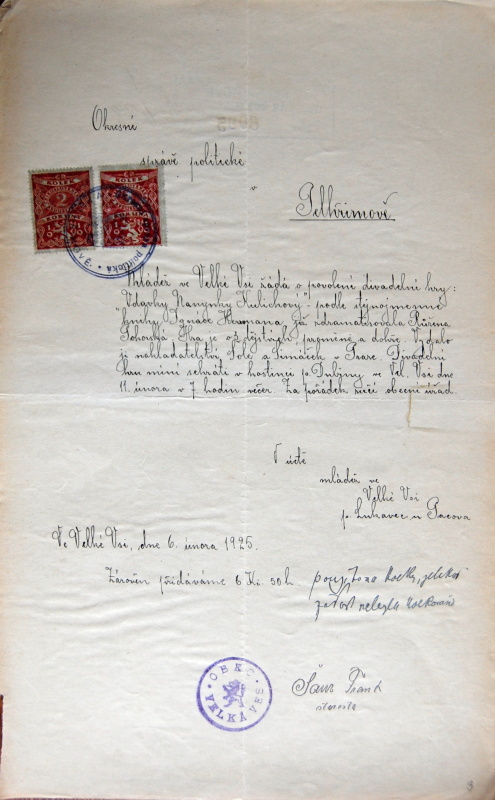 Okresní
správě politické
v
Pelhřimově
ČR ČR
KOLEK KOLEK
2
KORUNY KORUNA
1 9 1 9
Mládež ve Velké Vsi žádá o povolení divadelní hry:
"Vdavky Nanynky Kulichovy" podle stejnojmenné
knihy Ignáce Hermanna, již zdramatisovala Růžena
Pohorská. Hra je o 3 dějstvích, proměně a dohře. Vydalo
ji nakladatelství Šolc a Šimáček v Praze. Divadelní
hru míní sehráti v hostinci p. Dubiny ve Vel. Vsi dne
11. února v 7 hodin večer. Za pořádek ručí obecní úřad.
V úctě
mládež ve
Velké Vsi
p. Lukavec u Pacova
Ve Velké Vsi, dne 6. února 1925.
Zároveň přidáváme 6 Kč 50h.
žádost nebyla kolkována
OBEC
VELKÁ VES
Frant
starosta
3